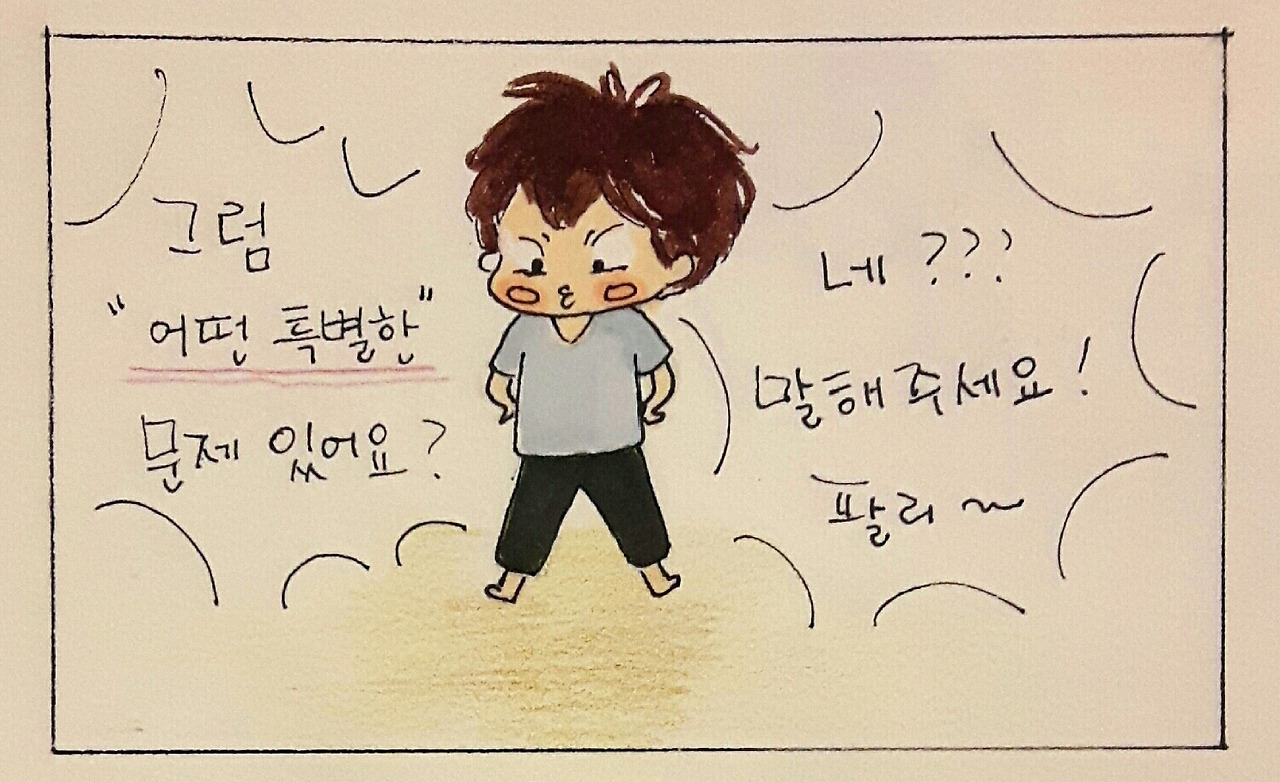 그럼
"어떤 특별한"
문제 있어요?
네???
말해 주세요!
퐐리~